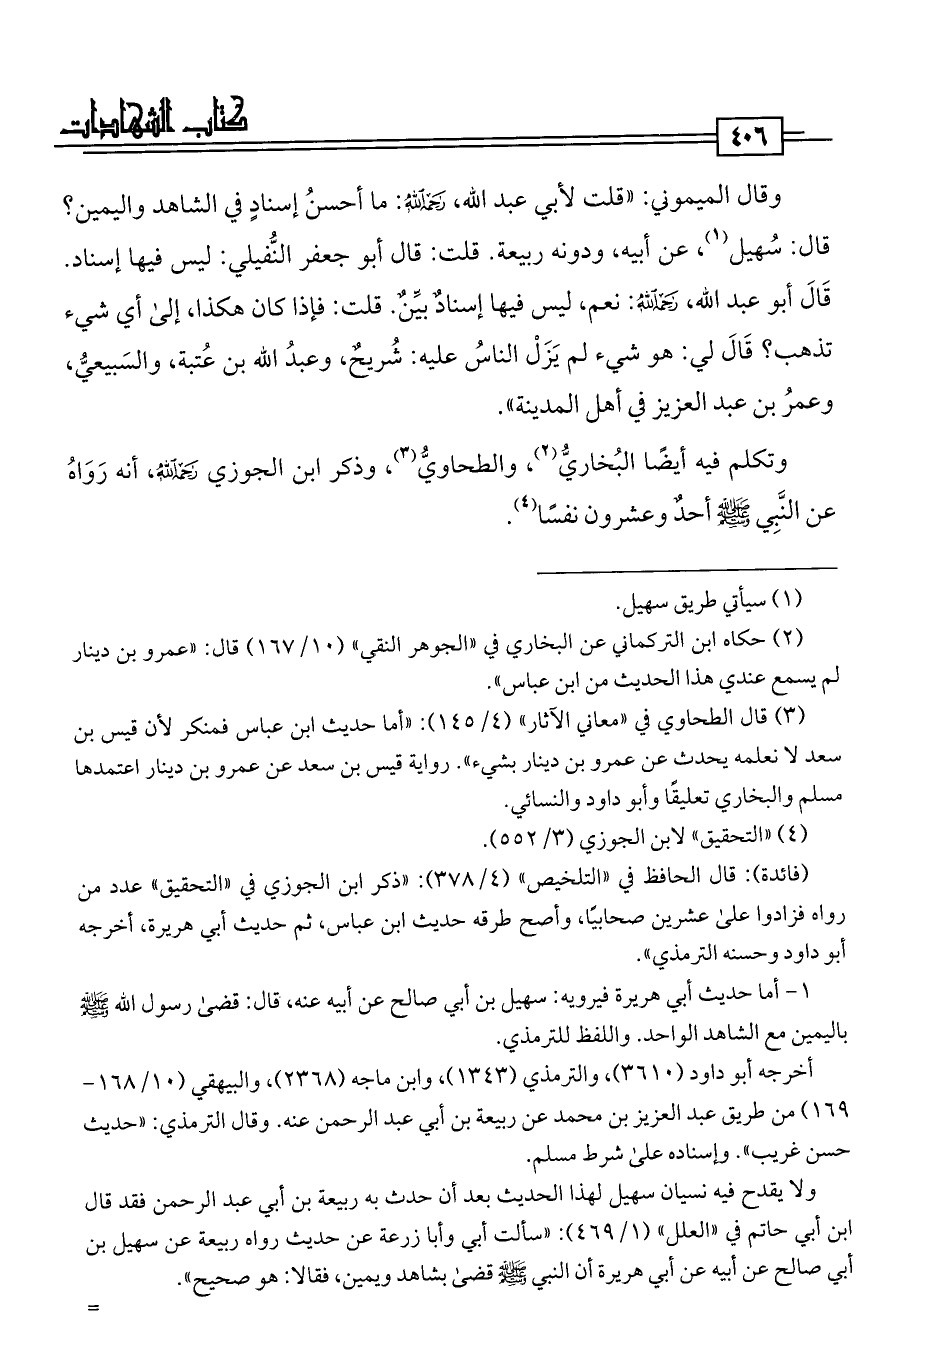 كتاب الشهادات
٤٠٦
وقال الميموني: «قلت لأبي عبد الله، رَحِمَهُ ٱللَّهُ: ما أحسنُ إسنادٍ في الشاهد واليمين؟
قال: سُهيل(١)، عن أبيه، ودونه ربيعة. قلت: قال أبو جعفر النُّفيلي: ليس فيها إسناد.
قَالَ أبو عبد الله، رَحِمَهُ ٱللَّهُ: نعم، ليس فيها إسنادٌ بيِّنٌ. قلت: فإذا كان هكذا، إلىٰ أي شيء
تذهب؟ قَالَ لي: هو شيء لم يَزَلْ الناسُ عليه: شُريحٌ، وعبدُ الله بن عُتبة، والسَبيعيُّ،
وعمرُ بن عبد العزيز في أهل المدينة».
وتكلم فيه أيضًا البُخاريُّ(٢)، والطحاويُّ(٣)، وذكر ابن الجوزي رَحِمَهُ ٱللَّهُ، أنه رَوَاهُ
عن النَّبِي ﷺ أحدٌ وعشرون نفسًا(٤).
(١) سيأتي طريق سهيل.
(٢) حكاه ابن التركماني عن البخاري في «الجوهر النقي» (١٠/ ١٦٧) قال: «عمرو بن دينار
لم يسمع عندي هذا الحديث من ابن عباس».
(٣) قال الطحاوي في «معاني الآثار» (٤/ ١٤٥): «أما حديث ابن عباس فمنكر لأن قيس بن
سعد لا نعلمه يحدث عن عمرو بن دينار بشيء». رواية قيس بن سعد عن عمرو بن دينار اعتمدها
مسلم والبخاري تعليقًا وأبو داود والنسائي.
(٤) «التحقيق» لابن الجوزي (٣/ ٥٥٢).
(فائدة): قال الحافظ في «التلخيص» (٤/ ٣٧٨): «ذكر ابن الجوزي في «التحقيق» عدد من
رواه فزادوا علىٰ عشرين صحابيًا، وأصح طرقه حديث ابن عباس، ثم حديث أبي هريرة، أخرجه
أبو داود وحسنه الترمذي».
١- أما حديث أبي هريرة فيرويه: سهيل بن أبي صالح عن أبيه عنه، قال: قضىٰ رسول الله ﷺ
باليمين مع الشاهد الواحد. واللفظ للترمذي.
أخرجه أبو داود (٣٦١٠)، والترمذي (١٣٤٣)، وابن ماجه (٢٣٦٨)، والبيهقي (١٠/ ١٦٨-
١٦٩) من طريق عبد العزيز بن محمد عن ربيعة بن أبي عبد الرحمن عنه. وقال الترمذي: «حديث
حسن غريب». وإسناده علىٰ شرط مسلم.
ولا يقدح فيه نسيان سهيل لهذا الحديث بعد أن حدث به ربيعة بن أبي عبد الرحمن فقد قال
ابن أبي حاتم في «العلل» (١/ ٤٦٩): «سألت أبي وأبا زرعة عن حديث رواه ربيعة عن سهيل بن
أبي صالح عن أبيه عن أبي هريرة أن النبي ﷺ قضىٰ بشاهد ويمين، فقالا: هو صحيح».
=